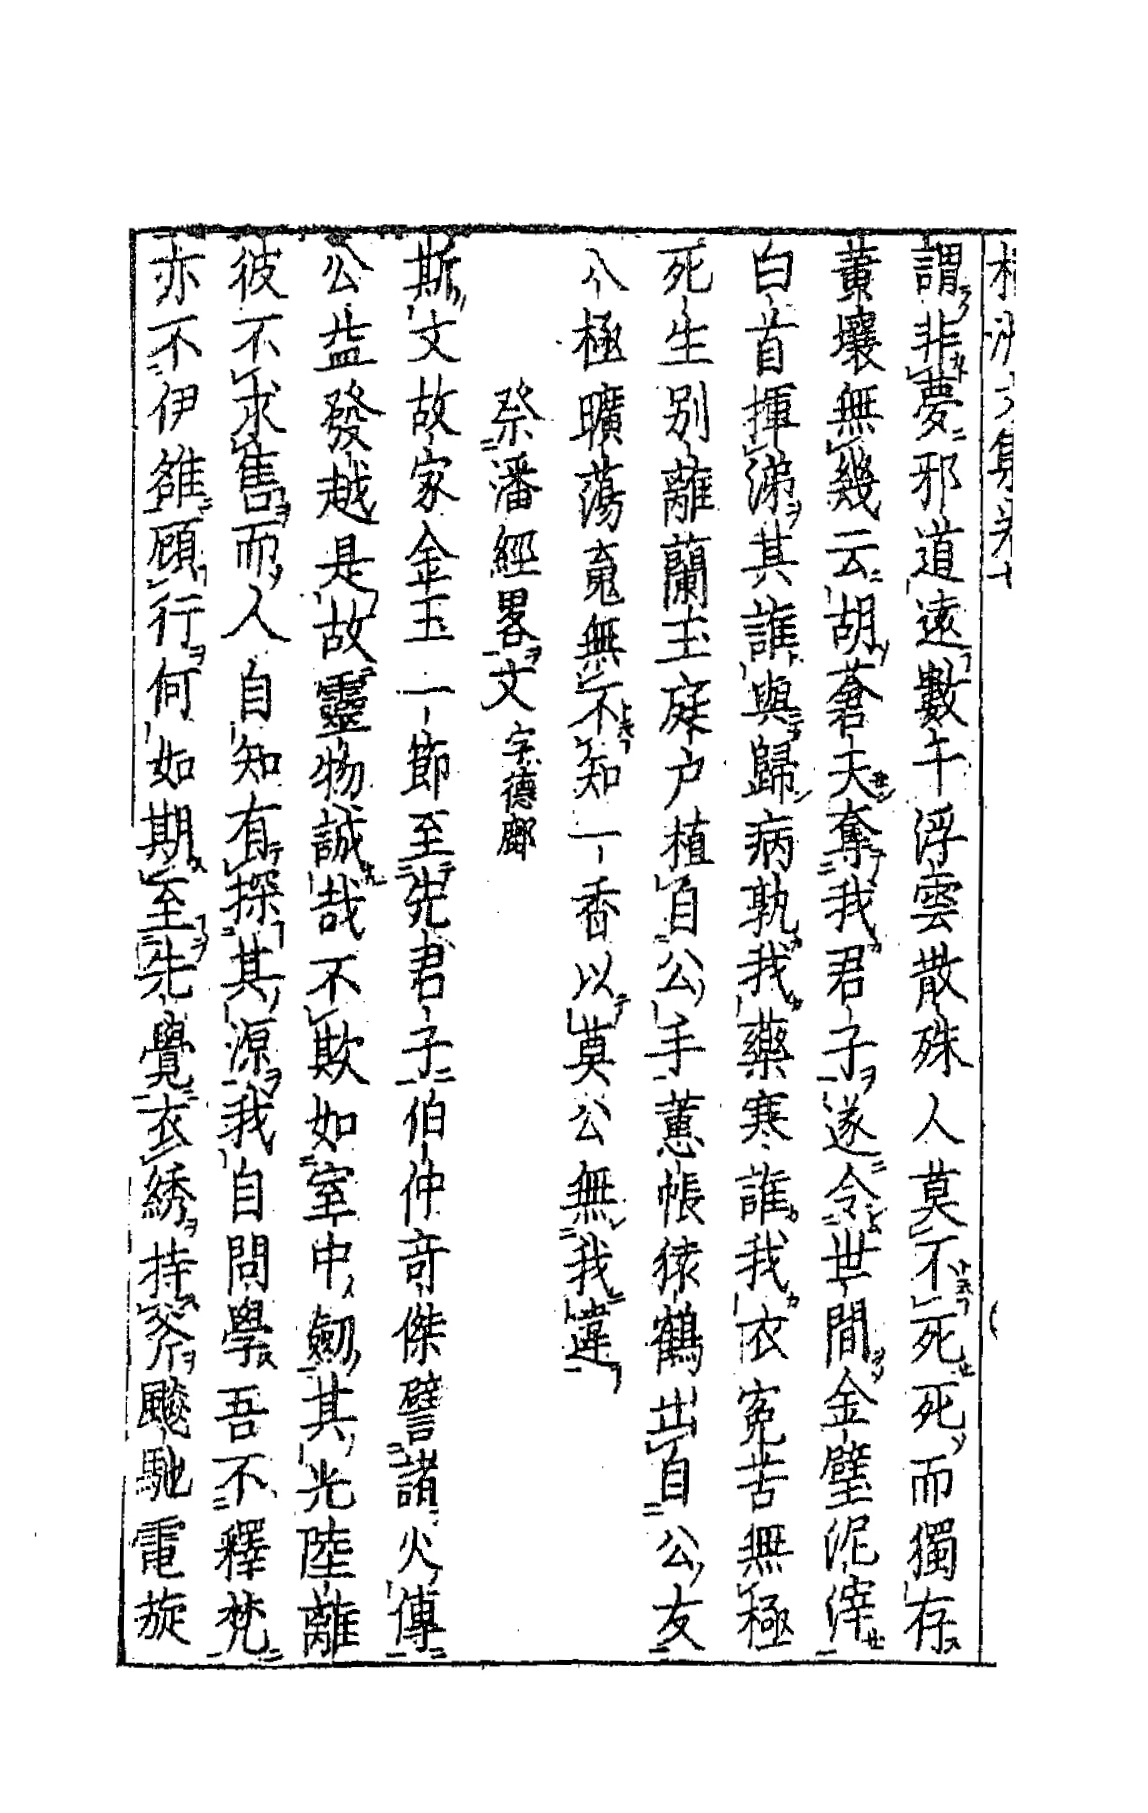 謂非夢邪道遠數千浮雲散殊人莫不死死而獨存
黃壤無幾云胡蒼天奪我君子遂令世間金璧泥滓
白首揮涕其誰與歸病孰我藥寒誰我衣寃苦無極
死生別離蘭玉庭户植自公手蕙帳猿鶴出自公友
八極曠蕩䰟無不知一香以莫公無我違
祭潘經畧文 宗德鄜
斯文故家金玉一節至先君子伯仲竒傑譬諸火傳
公益發越是故靈物誠哉不欺如室中劒其光陸離
彼不求售而人自知有探其源我自問學吾不釋梵
亦不伊雒顧行何如期至先覺衣綉持斧飈馳電旋